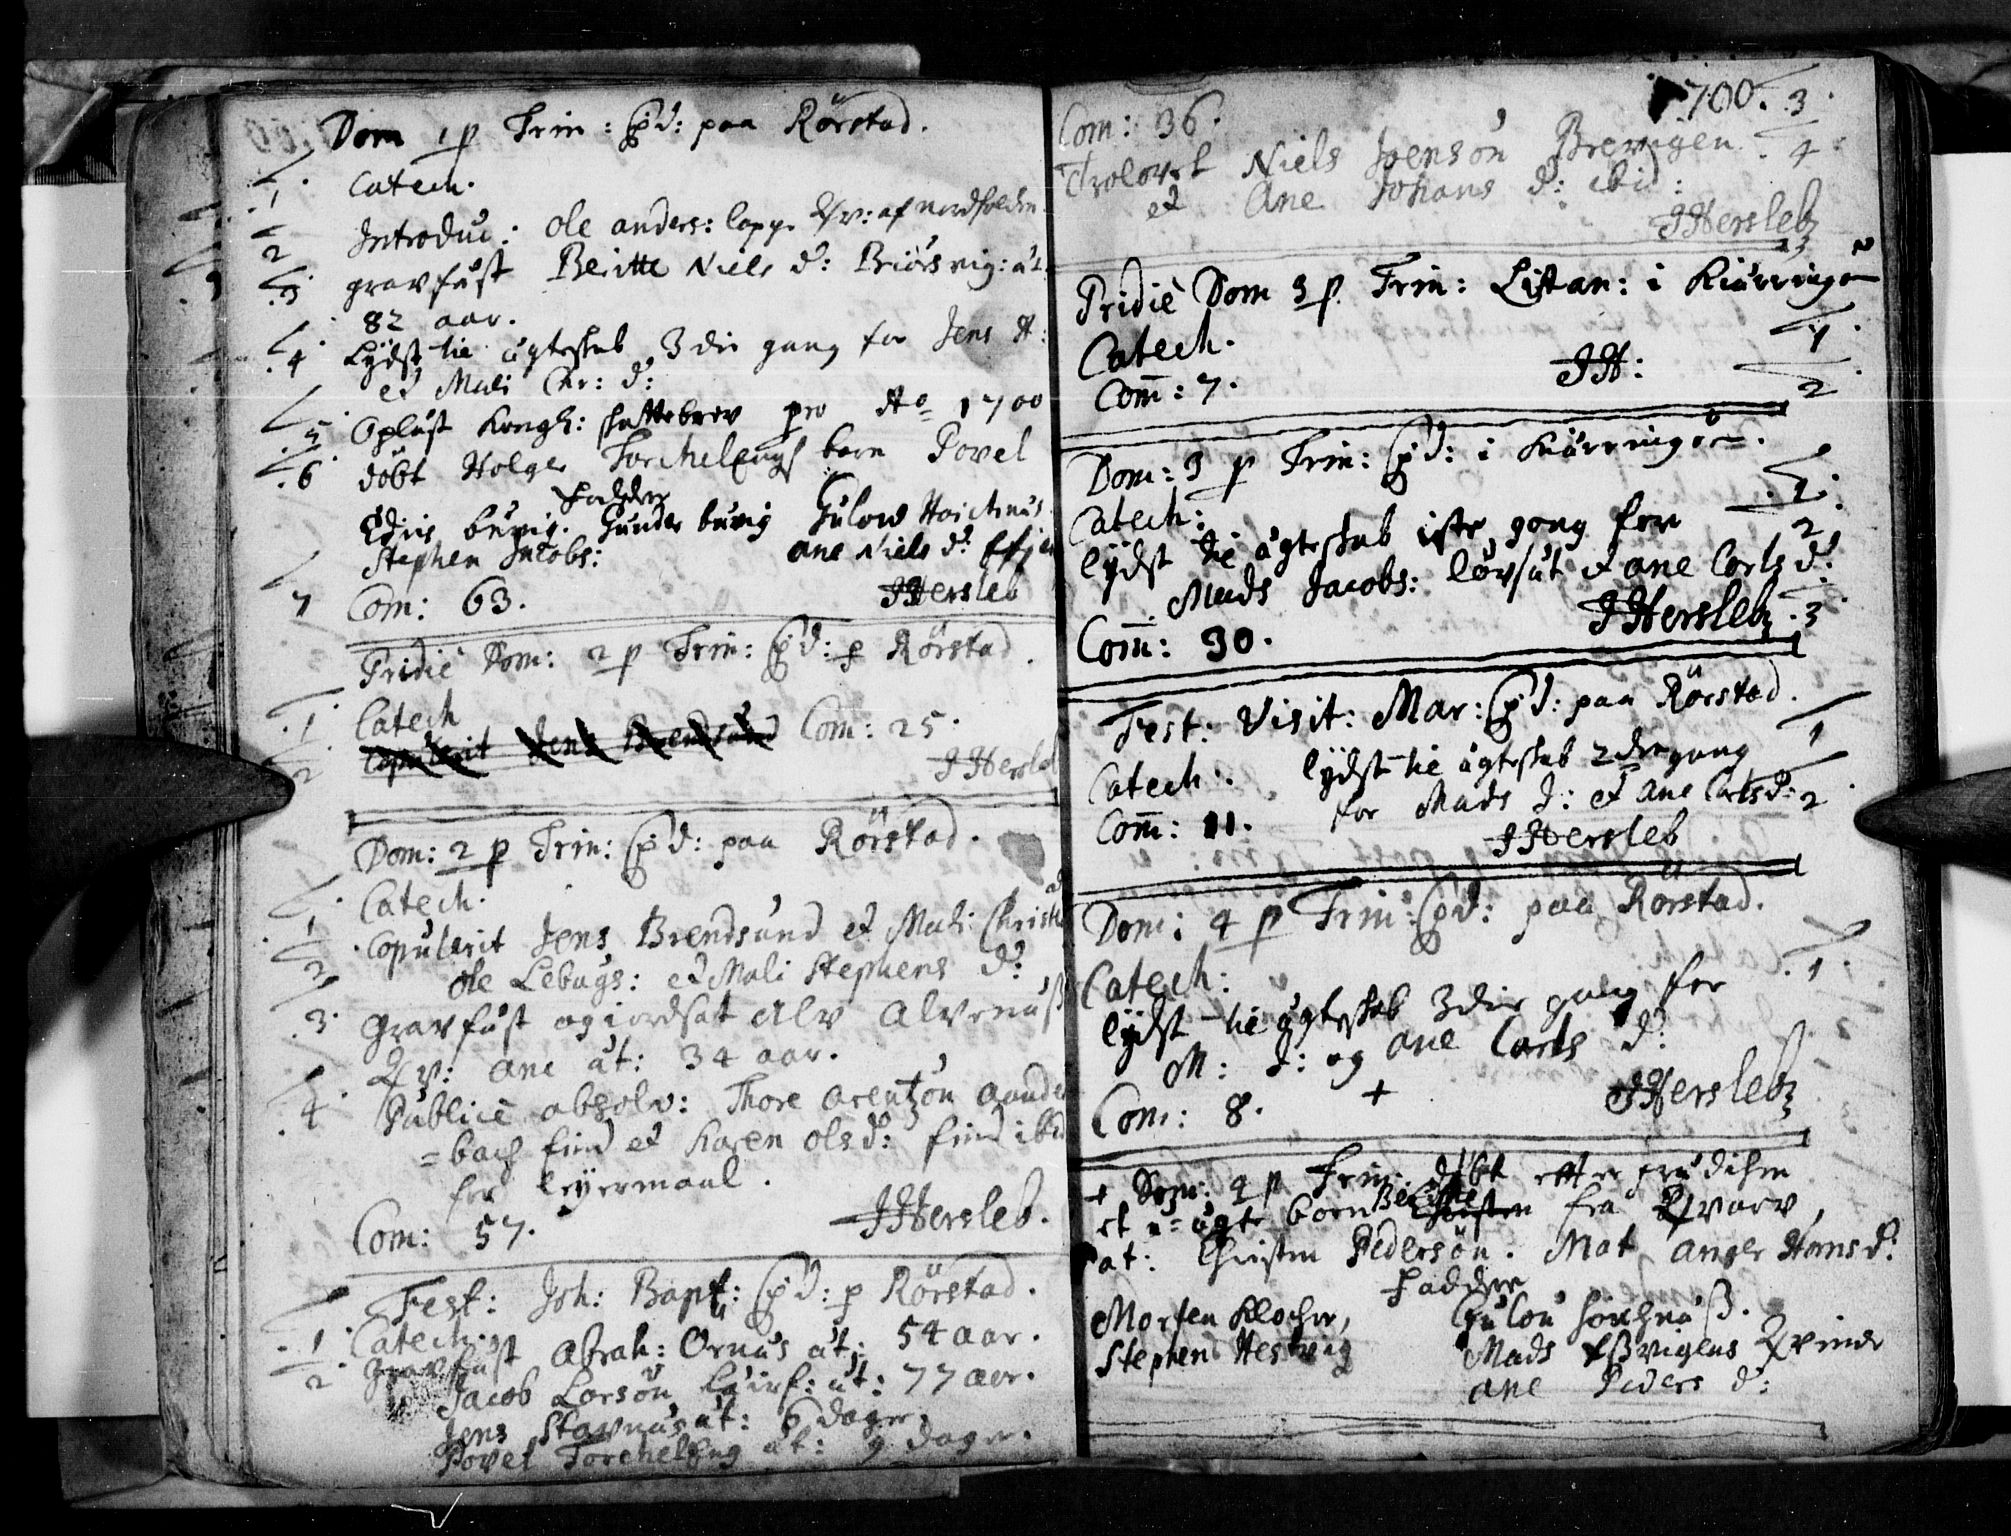 Dom 1 p Trin: Cpd: paa Rörstad.
1 Catech.
2 Introduc: Ole anders: lapp. Qv: af nordfolden
3 gravfäst Beritte Niels d: Briörsvig: ät:
82 aar.
4 Lÿdst til ägteskab 3die gang for Jens A:
et Mali Chr: d:
5 Opläst Kongl: skattebrev pro Ao 1700
6 döbt Holger Torchelengs barn Povel
Fadder
buvig. Gunder buvig Gulow
Stephen Jacobs: ane Niels d:
7 Com: 63. JHersleb
Pridie Dom: 2 p Trin: Cpd: p Rörstad.
1 Catech
2 Copulerit Jens Brendsund Com: 25.
JHersleb
Dom: 2 p Trin: Cpd: paa Rörstad.
1 Catech.
2 Copulerit Jens Brendsund et Mali Christ
Ole Lebags: et Mali Stephens d:
3 Gravfäst og iordsat Alv Alvenäss
Qv: Ane ät: 34 aar.
4 Publice absolv: Thore Arentzön
=bach find et Karen Ols d: find ibid
for leÿermaal.
Com: 57. JHersleb.
Fest: Joh: Bapt: Cpd: p Rörstad.
1 Catech.
2 gravfäst Abrah: Ornäs ät: 54 aar.
Jacob Larsön ät: 77 aar.
Jens Stavnäs ät: 6 dager.
Povel Torcheleng ät: 9 dager.
1700.
Com: 36. 3
Trolovet Niels Jensön Brevigen 4
et Ane Johans d: ibid:
JHersleb
Pridie Dom 3 p. Trin: i Kiärringö
Catech. 1
Com: 7. JH: 2
Dom: 3 p Trin: Cpd: i Kiärringöe.
Catech: 1
lÿdst til ägteskab iste gang for 2
Mads Jacobs: lövsät et ane Carls d:
Com: 30. JHersleb 3
Fest: Visit: Mar: Cpd: paa Rörstad.
Catech: lÿdst til ägteskab 2den gang 1
Com: 11. for Mads J: et Ane Carls d: 2
JHersleb
Dom: 4 p Trin: Cpd: paa Rörstad.
Catech: 1
lÿdst til ägteskab 3die gang for
M: J: og ane Carls d:
Com: 8. + JHersleb
+ Dom: 4 p Trin: döbt etter prädiken
et u=ägte born Beritte Christen fra Qvarv,
Pat: Christen Pedersön. Mat Anger Hans d:
Fadder
Morten Klocher, Gulou
Stephen Hestvig Mads Qvinde
ane Peders d: